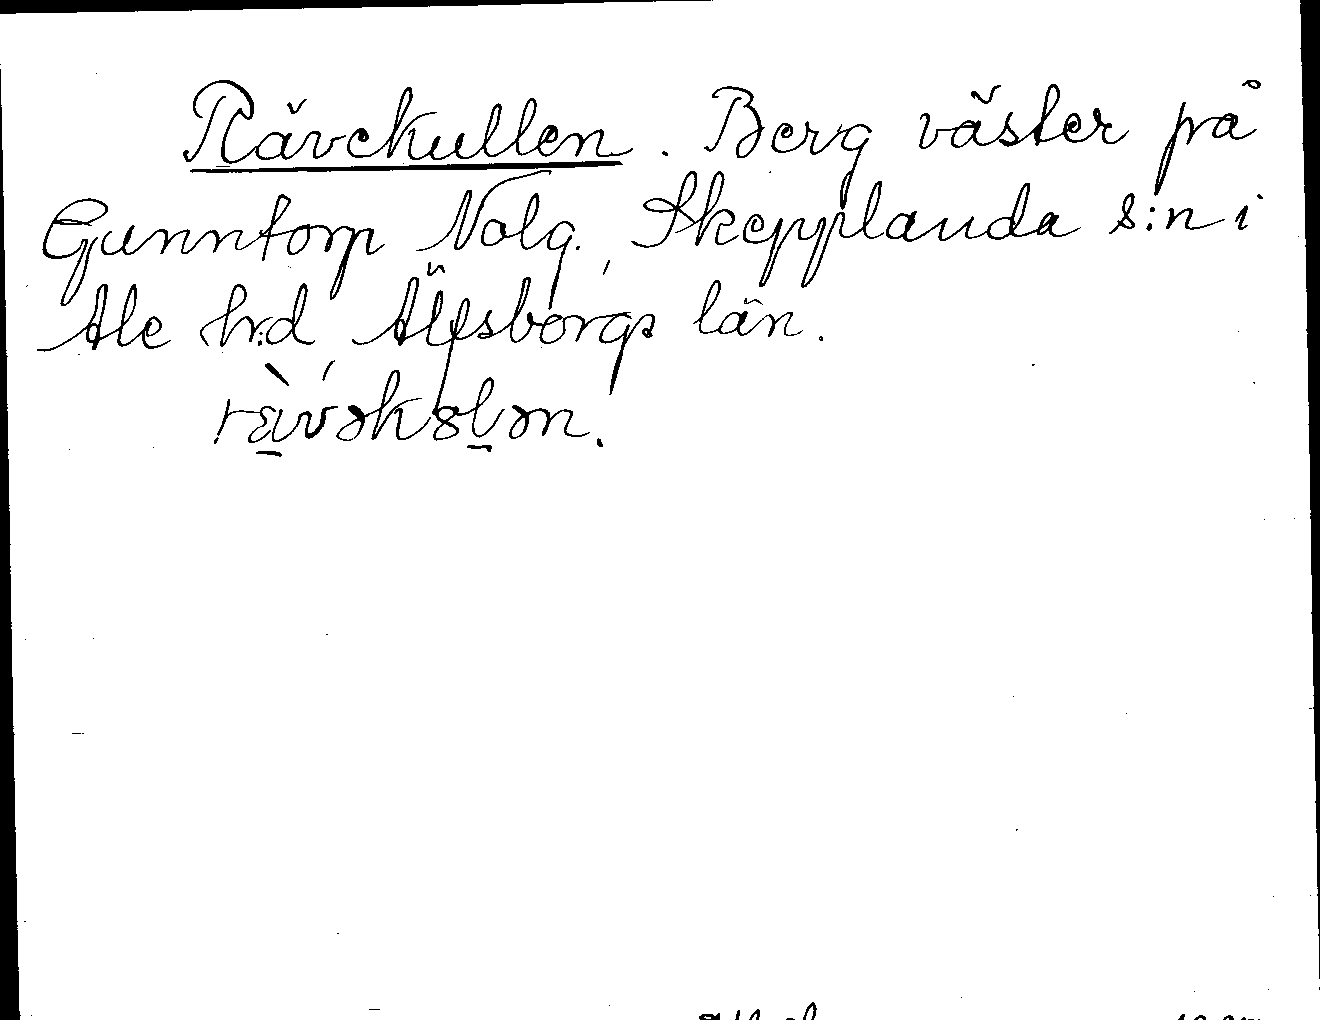 Rävekullen. Berg väster på
Gunntorp Nolg., Skepplanda s:n i
Ale h:d, Älfsborgs län.